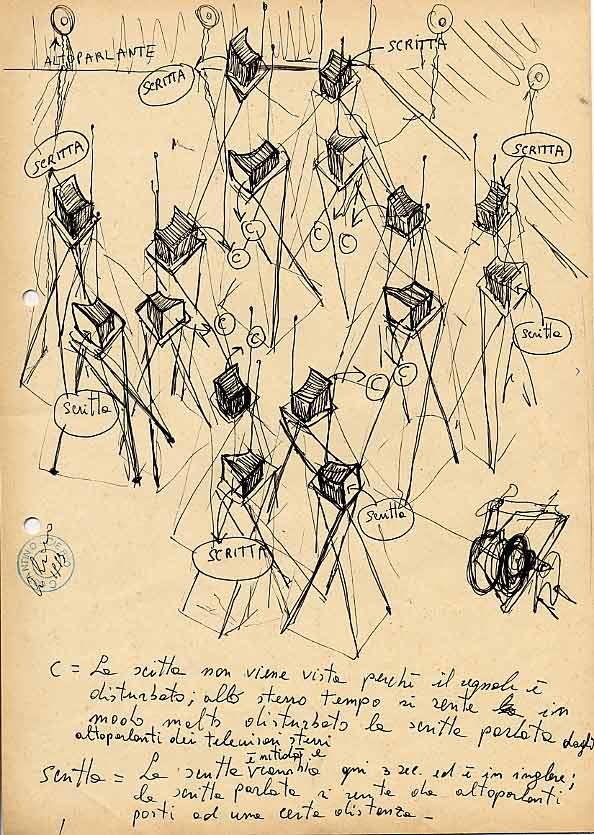 ALTOPARLANTE
SCRITTA
SCRITTA
SCRITTA
SCRITTA
C
C C
C
C
C C
Scritta
Scritta
Scritta
SCRITTA
C = La scitta non viene vista perchè il segnale è
disturbato; allo stesso tempo si sente in
modo molto disturbato la scritta parlata dagli
altoparlanti dei televisori stessi
è nitida e
Scritta = La scritta cambia ogni 3 sec. ed è in inglese;
la scritta parlata si sente da altoparlanti
posti ad una certa distanza -